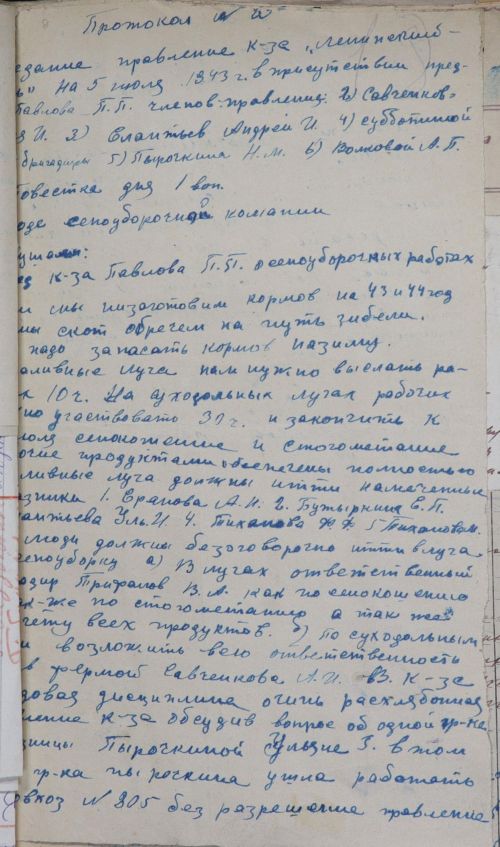 Протокол №
едание правление к-за „Ленинский
ь" на 5 июля 1943 г. в присутствии пред-
Павлова П.П. членов-правления: 2) Савченков-
И. 3) Елантьев Андрей И. 4) Субботиной
бригадиры 5) Пырочкина Н.М. 6) Волковой А.П.
Повестка дня 1 воп.
оде сеноуборочной компании
ушали:
к-за Павлова П.П. о сеноуборочных работах
и мы низаготовим кормов на 43 и 44 год
мы скот обречем на путь гибели.
надо запасать кормов на зиму.
аливные луга нам нужно выслать ра-
10 ч. На суходольных лугах рабочих
но участвовать 30 ч. и закончить к
юля сенокошение и стогометание
очие продуктами обеспечены полностью
ливные луга должны итти намеченные
1. Еранова А.И. 2. Бутыркина Е.П.
антьева Уль.И. 4. Тиханова 5 Тиханова М.
люди должны безоговорочно итти в луга
сеноуборку а) В лугах ответственный
адир Трифанов В.А. как по сенокошению
к-же по стогометанию а так же
чету всех продуктов. б) по суходольным
и возложить всю ответственность
в фермой Савченкова А.И. В к-зе
довая дисциплина очень расхлябанная
ление к-за обсудив вопрос об одной гр-ка
зницы Пырочкиной Ульяне З. в том
гр-ка пырочкина ушла работать
овхоз № 805 без разрешение правление